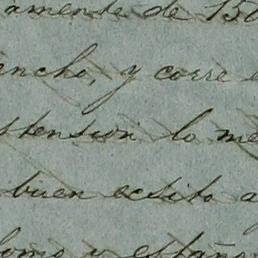 amente de 150
ancho, y corre
stension lo me
buen ecsito a
como y españo